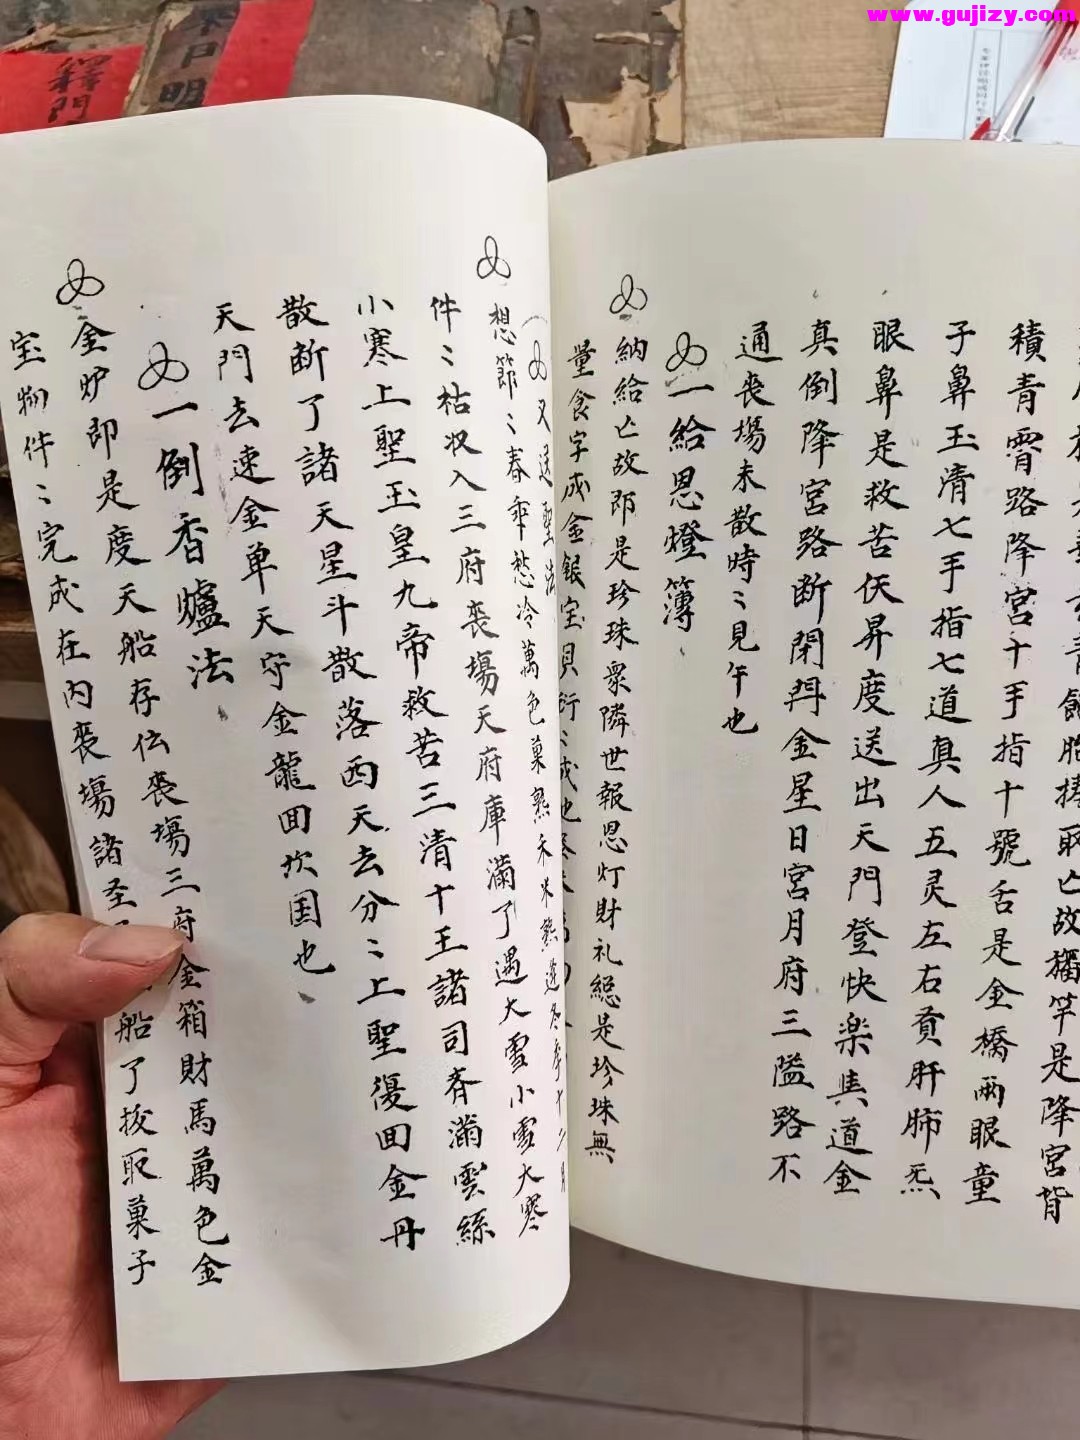 www.gujizy.com
釋門
日明
積青霄路降宮十手指十號舌是金橋兩眼童
子鼻玉清七手指七道真人五灵左右賁肝肺炁
眼鼻是救苦仸昇度送出天門登快楽具道金
真倒降宮路断閉門金星日宮月府三隘路不
通喪場未散時〻見午也
一給恩燈簿
納給亡故即是珍珠衆隣世報恩灯財礼總是珍珠無
量食字成金銀宝貝行〻成也
又送聖法
想節〻春乖愁冷萬色菓熟禾米熟蓬冬季十二月
件〻枯収入三府喪場天府庫滿了遇大雪小雪大寒
小寒上聖玉皇九帝救苦三清十王諸司斉滿雲絲
散断了諸天星斗散落西天去分〻上聖復回金丹
天門去速金单天守金龍回坎国也
一倒香爐法
金炉即是度天船存伝喪場三府金箱財馬萬色金
宝物件〻完成在内喪場諸圣 船了拔取菓子